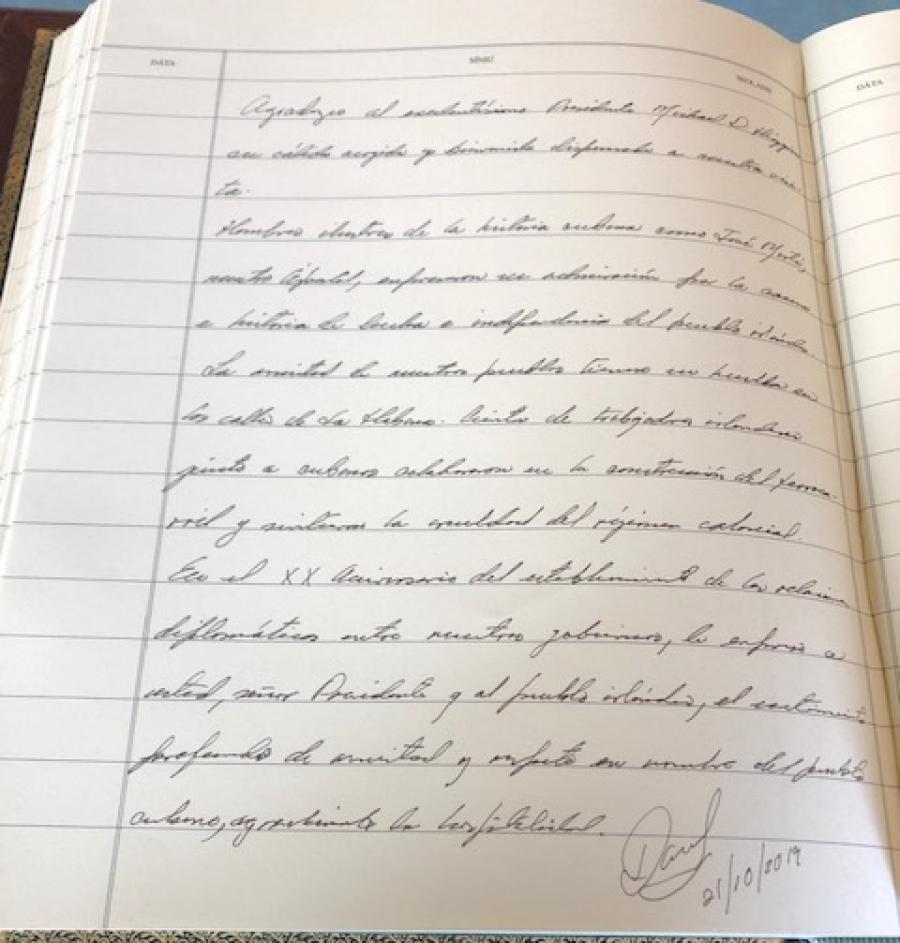 DÁTA SÍNIÚ SEOLADH DÁTA
Agradezco al excelentísimo Presidente Michael D. Higgins
su cálida acogida y bienvenida dispensada a nuestra visi-
ta.
Hombres ilustres de la historia cubana como José Martí,
nuestro Apóstol, expresaron su admiración por la
e historia de lucha e independencia del pueblo irlandés.
La amistad de nuestros pueblos tienen su huella en
las calles de La Habana. Cientos de trabajadores irlandeses
junto a cubanos colaboraron en la construcción del ferroca-
rril y sintieron la crueldad del régimen colonial.
En el XX Aniversario del establecimiento de las relaciones
diplomáticas entre nuestros gobiernos, le expreso a
usted, señor Presidente y al pueblo irlandés, el sentimiento
profundo de amistad y respeto en nombre del pueblo
cubano, agradeciendo la hospitalidad.
21/10/2019